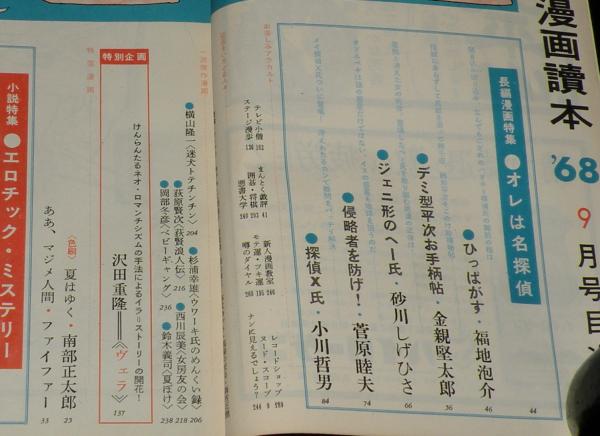 漫画讀本 '68 9月号目次
長編漫画特集
●オレは名探偵 44
●ひっぱがす・福地泡介 46
●デミ型平次お手柄帖・金親堅太郎 36
●ジェニ形のへー氏・砂川しげひさ 66
●侵略者を防げ!・菅原睦夫 74
●探偵X氏・小川哲男 84
お楽しみアラカルト
テレビ小僧 162
ステージ漫歩 136
まんとく戯評 41
囲碁・将棋 293
悪書大学 240
新人漫画教室 246
モテ運・ツキ運 135
噂のダイヤル 263
レコードショップ 289
ヌード・スコープ 9
ナンに見えるでしょう? 244
●横山隆一〈迷犬トテチンチン〉 204
●杉浦幸雄〈ウワーキ氏のめんくい録〉 206
●荻原賢次〈荻賢浪人伝〉 216
●西川辰美〈女房友の会〉 218
●岡部冬彦〈ベビーギャング〉 236
●鈴木義司〈夏ぼけ〉 238
特別企画
けんらんたるネオ・ロマンチシズムの手法によるイラ=ストーリーの開花!
沢田重隆══〈ヴェラ〉 137
特選漫画
〈色刷〉夏はゆく・南部正太郎 25
ああ、マジメ人間・ファイファー 33
小説特集
●エロチック・ミステリー